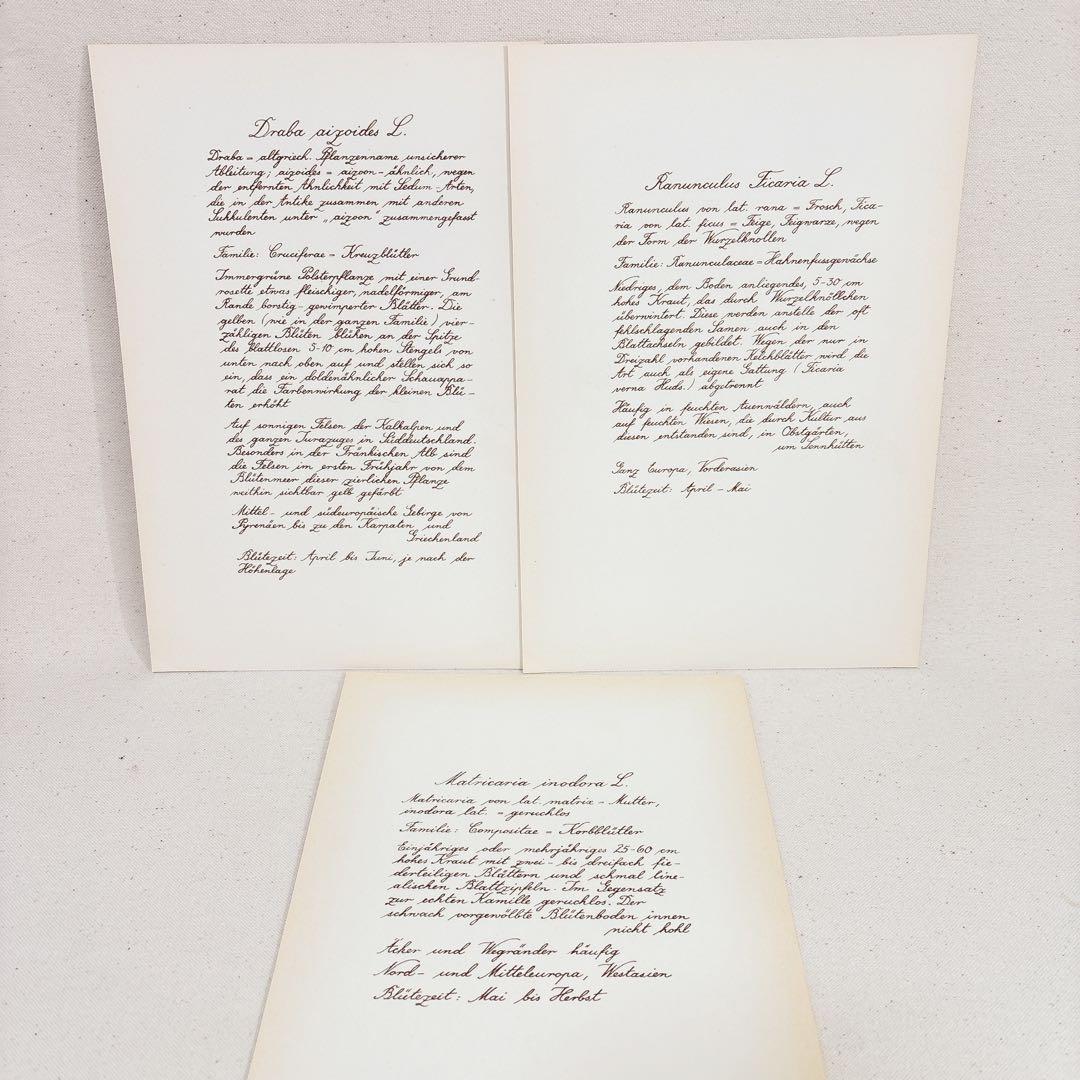 Draba aizoides L.
Draba = altgriech. Pflanzenname unsicherer
Ableitung; aizoides = aizoon-ähnlich, wegen
der entfernten Ähnlichkeit mit Sedum-Arten,
die in der Antike zusammen mit anderen
Sukkulenten unter „aizoon" zusammengefasst
wurden
Familie: Cruciferae = Kreuzblütler
Immergrüne Polsterpflanze mit einer Grund-
rosette etwas fleischiger, nadelförmiger, am
Rande borstig-gewimperter Blätter. Die
gelben (wie in der ganzen Familie) vier-
zähligen Blüten blühen an der Spitze
des blattlosen 5-10 cm hohen Stengels von
unten nach oben auf und stellen sich so
ein, dass ein doldenähnlicher Schauappa-
rat die Farbenwirkung der kleinen Blü-
ten erhöht
Auf sonnigen Felsen der Kalkalpen und
des ganzen Jurazuges in Süddeutschland.
Besonders in der Fränkischen Alb sind
die Felsen im ersten Frühjahr von dem
Blütenmeer dieser zierlichen Pflanze
weithin sichtbar gelb gefärbt
Mittel- und südeuropäische Gebirge von
Pyrenäen bis zu den Karpaten und
Griechenland
Blütezeit: April bis Juni, je nach der
Höhenlage
Ranunculus Ficaria L.
Ranunculus von lat. rana = Frosch, Fica-
ria von lat. ficus = Feige, Feigwarze, wegen
der Form der Wurzelknollen
Familie: Ranunculaceae = Hahnenfussgewächse
Niedriges, dem Boden anliegendes, 5-30 cm
hohes Kraut, das durch Wurzelknöllchen
überwintert. Diese werden anstelle der oft
fehlschlagenden Samen auch in den
Blattachseln gebildet. Wegen der nur in
Dreizahl vorhandenen Kelchblätter wird die
Art auch als eigene Gattung (Ficaria
verna Huds.) abgetrennt
Häufig in feuchten Auenwäldern, auch
auf feuchten Wiesen, die durch Kultur aus
diesen entstanden sind, in Obstgärten,
um Sennhütten
Ganz Europa, Vorderasien
Blütezeit: April - Mai
Matricaria inodora L.
Matricaria von lat. matrix - Mutter,
inodora lat. = geruchlos
Familie: Compositae = Korbblütler
Einjähriges oder mehrjähriges 25-60 cm
hohes Kraut mit zwei- bis dreifach fie-
derteiligen Blättern und schmal line-
alischen Blattzipfeln. Im Gegensatz
zur echten Kamille geruchlos. Der
schwach vorgewölbte Blütenboden innen
nicht hohl
Äcker und Wegränder häufig
Nord- und Mitteleuropa, Westasien
Blütezeit: Mai bis Herbst